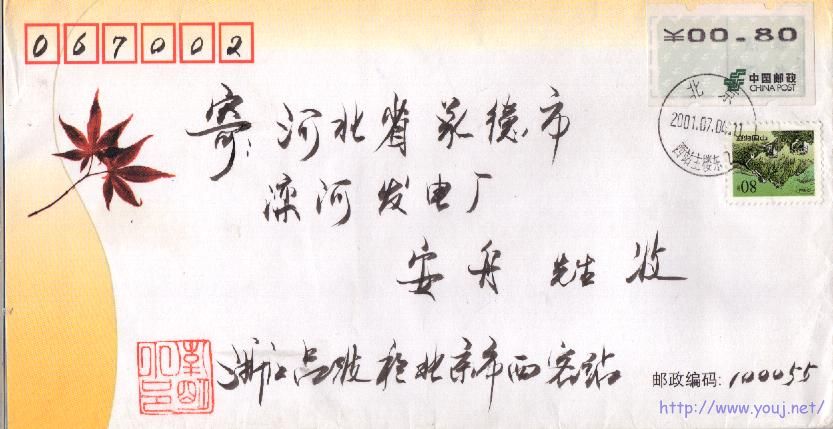 067002
¥00.80
中国邮政
CHINA POST
北京
2001.07.04.11
寄:河北省承德市
滦河发电厂
安舟 先生 收
于北京市西客站
邮政编码: 100055
http://www.youj.net/